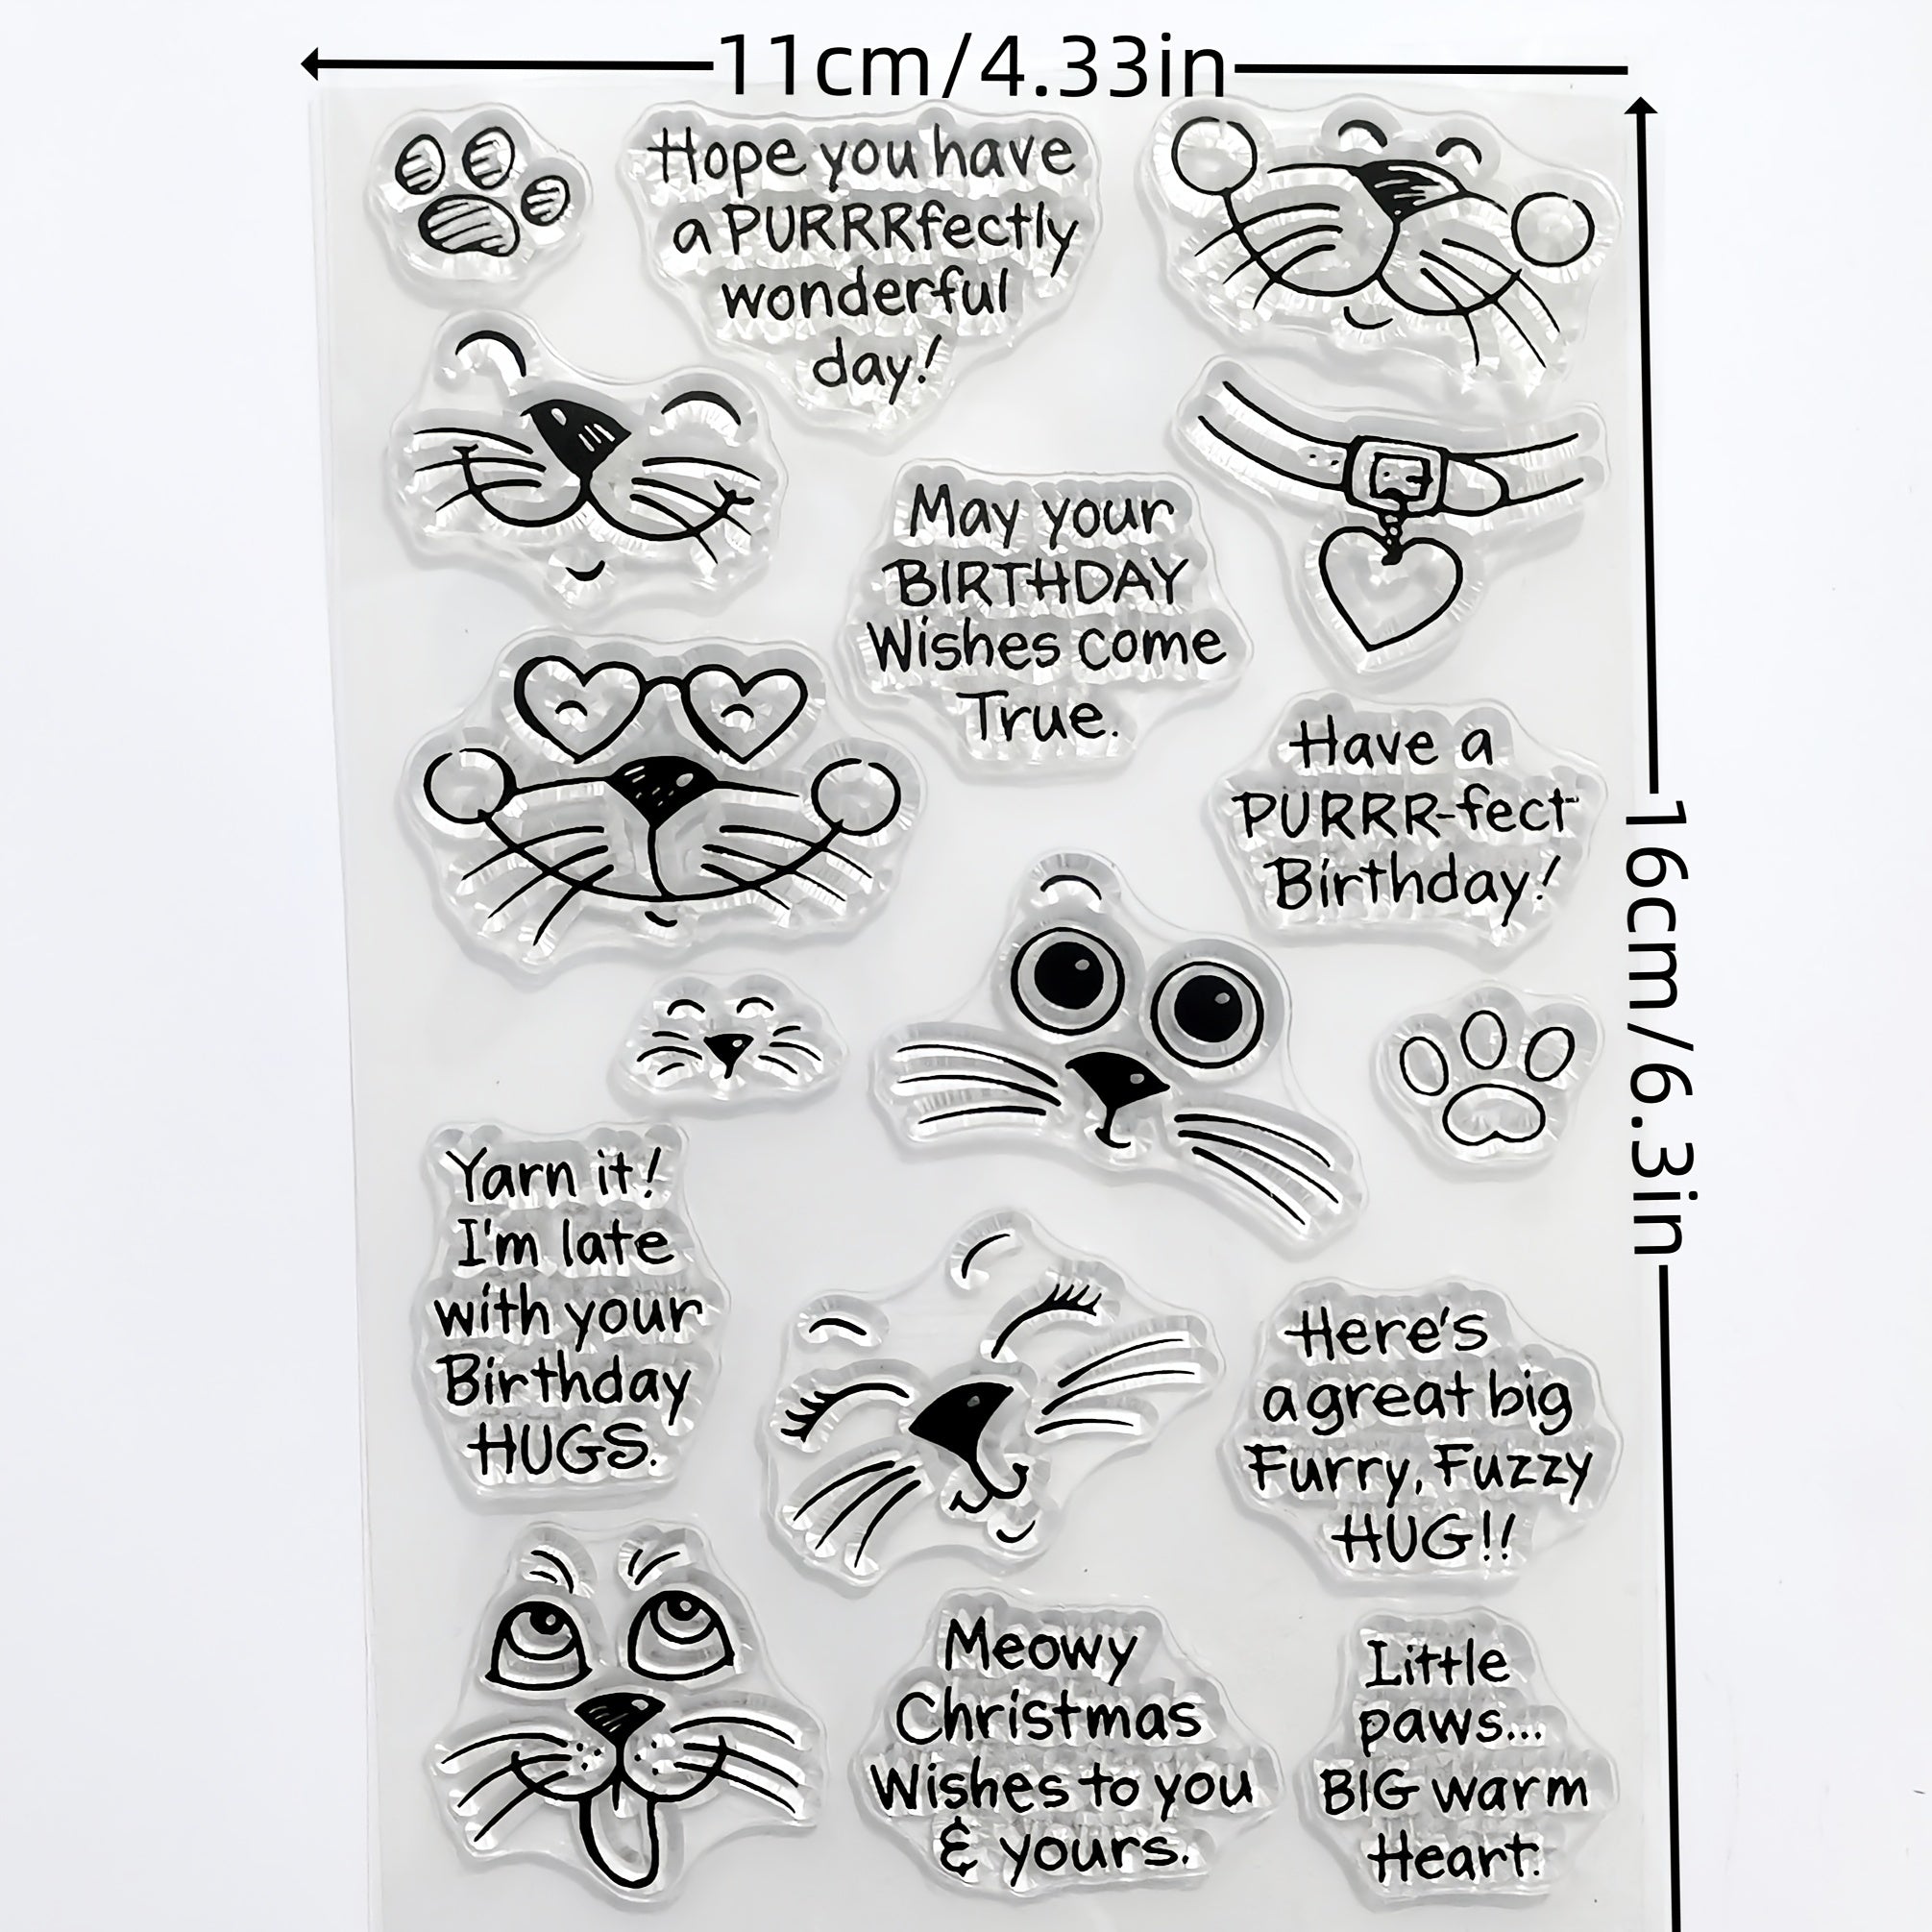 11cm/4.33in
Hope you have
a PURRRfectly
wonderful
day!
May your
BIRTHDAY
Wishes come
True.
Have a
PURRR-fect
Birthday!
16cm/6.3in
Yarn it!
I'm late
with your
Birthday
HUGS.
Here's
a great big
Furry, Fuzzy
HUG!!
Meowy
Christmas
Wishes to you
& yours.
Little
paws...
BIG warm
Heart.